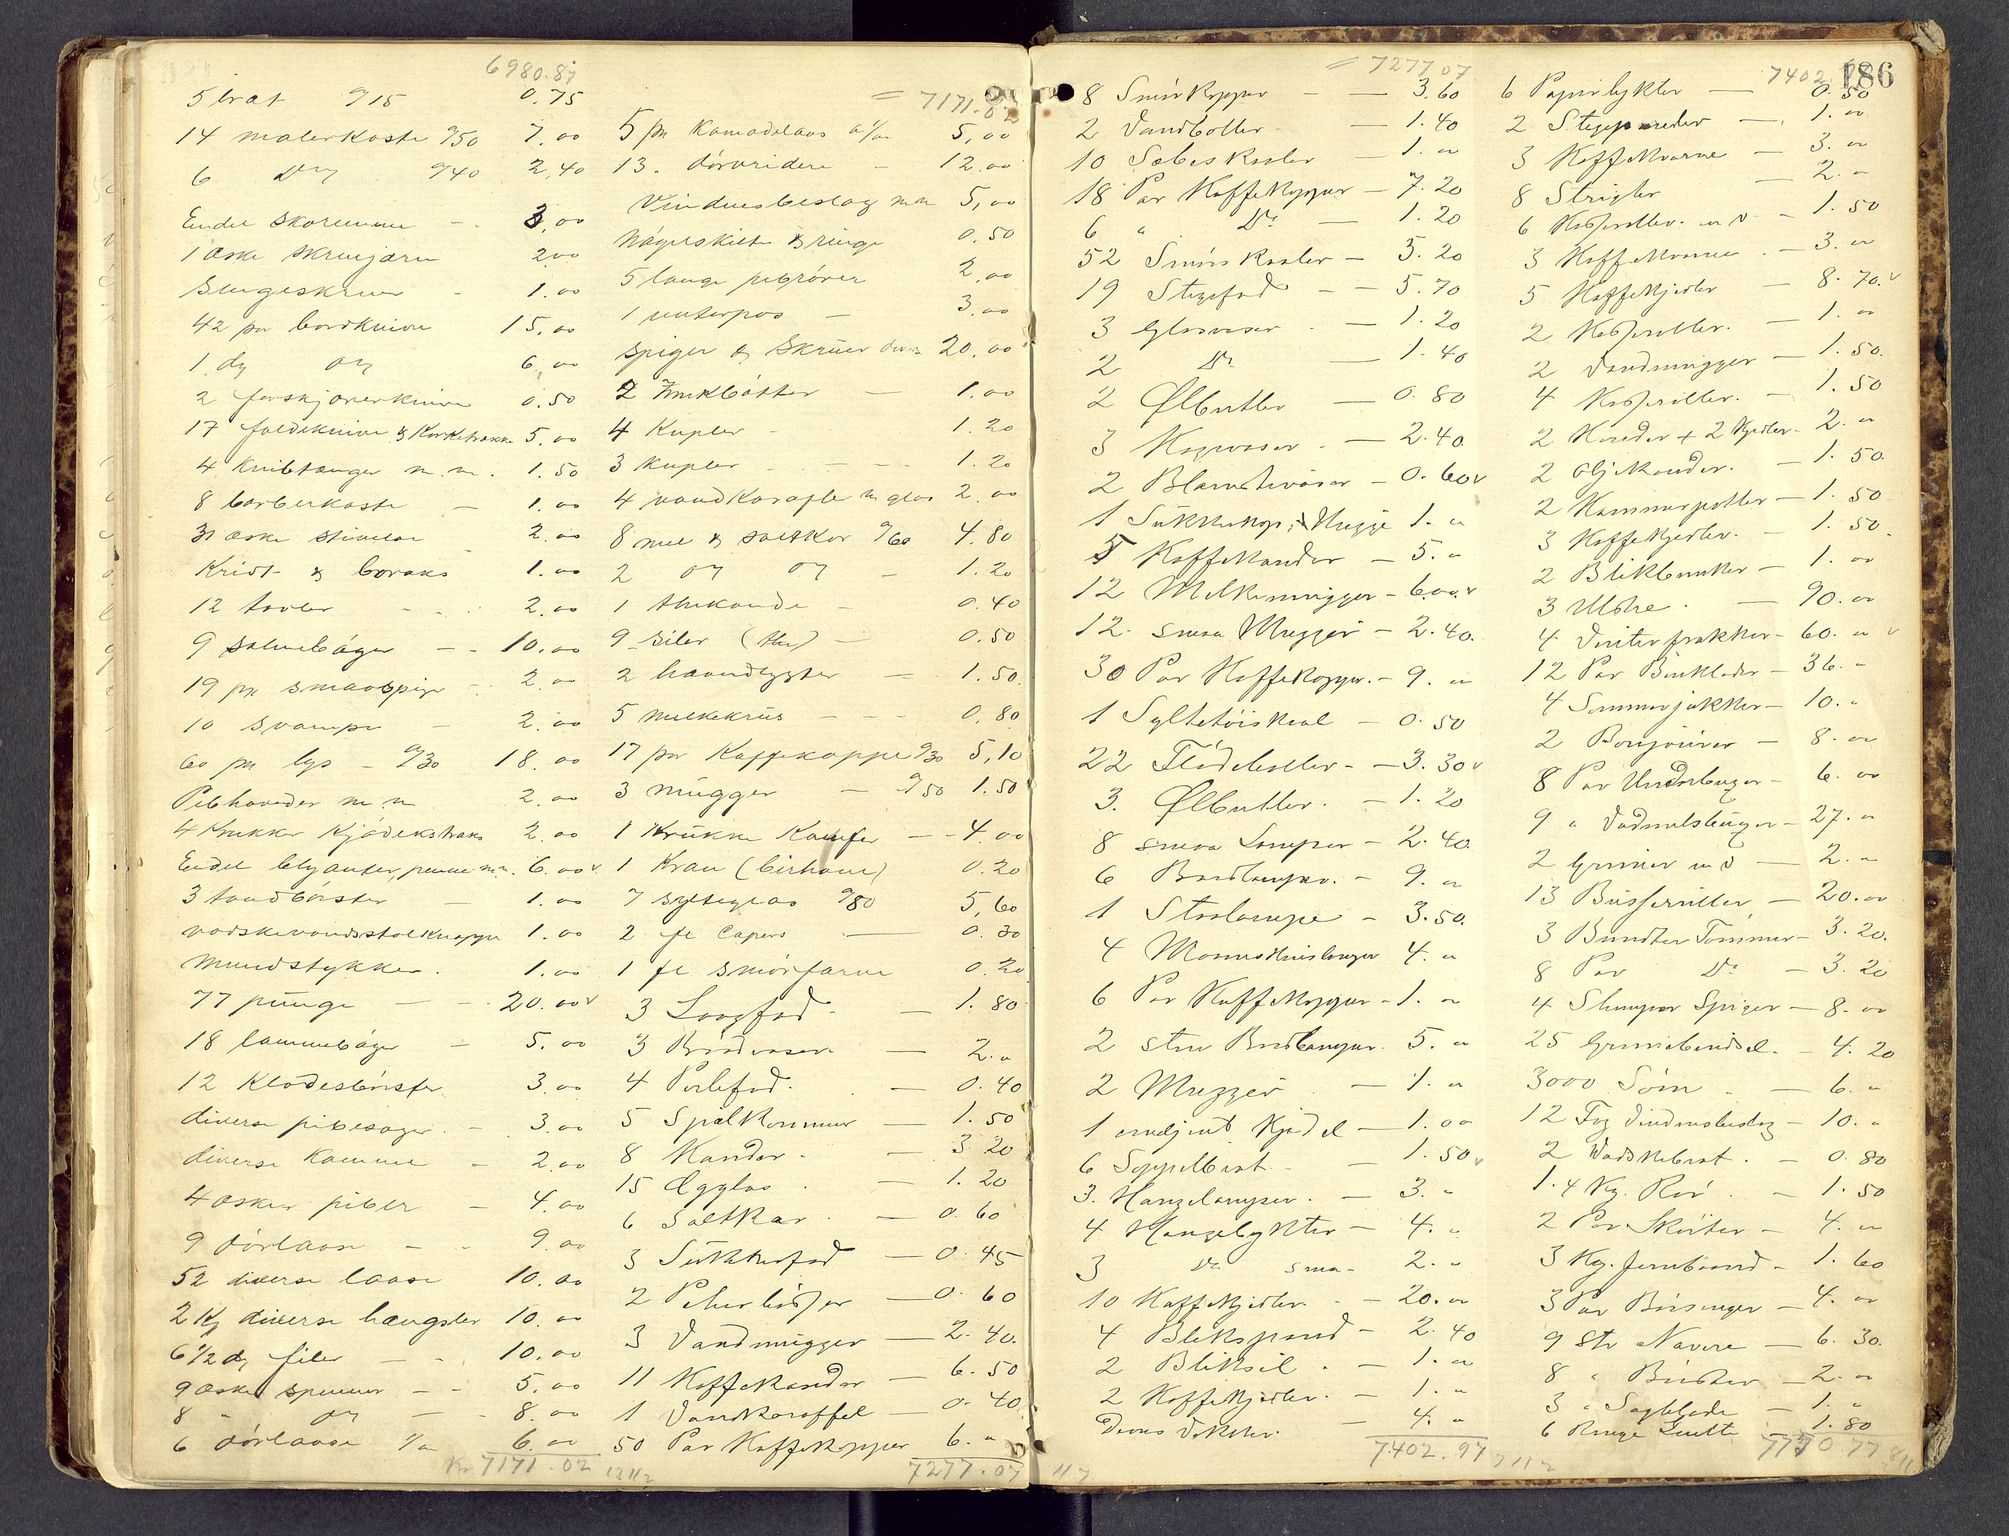 6980.87
5 bræt a/15 0.75
14 malerkoste a/50 7.00
6 Do a/40 2,40
Endel skoremme - 3,00
1 æske skruejærn 2.00
Slugeskruer - 1.00
42 par bordknive 15,00
1 dz Do 6,00
2 forskjærerknive 0.50
17 foldeknive & Korketrækk 5,00
4 Knibtænger m.m. 1.50
8 barberkoste - 1.00
31 æske stivelse 2.00
Kridt & borax 1.00
12 tavler - - 2.00
9 salmebøger - - 10.00
19 pk smaaspiger 2.00
10 svampe - 2.00
60 pk lys - a/30 18.00
Pibhoveder m.m 2.00
4 Krukker Kjødekstrakt 2.00
Endel blyanter, penne m.m. 6.00
3 tandbørster - 1.00
vadskevandsstolknapper 1.00
Mundstykker. 1.00
77 punge - - 20.00
18 lommebøger - 5.00
12 Klædesbørster 3.00
diverse pibesager. - 3.00
diverse Kamme - 2.00
4 æsker piber - 4.00
9 dørlaase - - 9.00
52 diverse laase 10.00
2 Kg diverse hængsler 10.00
6 1/2 dz filer - - 10.00
9 æsker spenner - - 5.00
8 " Do - - 8.00
6 dørlaase 1/00 6.00
Kr 7171.02
= 7171.02
5 pk Komodelaas a 1/00 5,00
13. dørvridere - 12.00
Vinduesbeslag m.m 5,00
Nøgleskilte & ringe 0.50
5 lange piberører 2,00
1 vaterpas - 3.00
spiger & skruer divers 20.00
2 Zinkbøtter - 1.00
4 Kupler - 1.20
3 Kupler - - - 1.20
4 vandkarafle m glas 2.00
8 mel & saltkar a/60 4.80
2 Do Do - 1.20
1 thekande - 0.40
9 siler (the) - 0.50
2 haandlygter - 1.50
5 melkekrus - - - 0.80
17 par Kaffekopper a/30 5,10
3 mugger - a/50 1.50
1 Krukke Kamfer - - 4.00
1 Kran (birhane) 0.20
7 sylteglas a/80 5,60
2 fl Capers - 0.30
1 fl smørfarve 0.20
3 Langfad - 1.80
3 Brødvaser - 2."
4 Perlefad. - 0.40
5 Spølkommer - 1.50
8 Kander. - 3.20
15 Ægglas . - 1.20
6 Saltkar. - 0.60
3 Sukkerfad - 0.45
2 Peberbøsser - 0.60
3 Vandmugger - 2.40
11 Kaffekander - 6.50
1 Vandkaraffel - 0.40
50 Par Kaffekopper 6."
7277.07
= 7277.07
8 Smørkopper - - 3.60
2 Vandboller - 1.40
10 Sæbeskaaler - 1."
18 Par Kaffekopper - 7.20
6 " Do - 1.20
52 Smørskaaler - 5.20
19 Stegefad - - 5.70
3 Glasvaser . - 1.20
2 Do - 1.40
2 Ølbutler - 0.80
3 Kagvaser . - 2.40
2 Blomstervaser - 0.60
1 Sukkerkop, + Mugge 1."
5 Kaffekander - 5."
12 Melkemugger - 6.00
12. smaa Mugger - 2.40
30 Par Kaffekopper. - 9."
1 Syltetøiskaal - 0.50
22 Flødeboller - - 3.30
3. Ølbutler. - 1.20
8 smaa Lamper - 2.40
6 Bordlamper. - 9."
1 Staalampe - 3.50
4 Maaneskinslamper 4."
6 Par Kaffekopper - 1."
2 store Bordlamper. 5."
2 Mugger - 1."
1 emaljeret Kjedel - 1.00
6 Soppelbret - - 1.50
3. Hængelamper. - 3."
4 Hængelykter - 4."
3 Do smaa - 2."
10 Kaffekjedler - 20."
4 Blekspand - 2.40
2 Bliksil . - 1."
2 Kaffekjedler. - 1."
Divers Dækster. - 4."
7402.97
7402.97
186
6 Papirlykter - 0.50
2 Stegepander - 1."
3 Kaffekværne - 3."
8 Strigler - 2."
6 Kasseroller. m D - 1.50
3 Kaffekværne . - 3."
5 Kaffekjedler - 8.70
2 Kasseroller. - 1."
2 Vandmugger - 1.50
4 Kasseroller. - 1.50
2 Kander + 2 Kjedler - 2."
2 Oljekander. - 1.50
2 Kammerpotter - 1.50
3 Kaffekjedler. - 1.50
2 Blikbunker - 1."
3 Ulstre . - 90.00
4 Vinterfrakker - 60."
12 Par Benklæder - 36."
4 Sommerjakker - 10."
2 Bonjourer - 8."
8 Par Underbuxer - 6."
9 " Vadmelsbuxer - 27."
2 Grimer m D - 2."
13 Busseruller - 20.00
3 Bundter Tømmer - 3.20
8 Par Do - 3.20
4 Slumper Spiger - 8.00
25 Grimebindsel. - 4.20
3000 Søm . - 6."
12 Fag Vinduesbeslag - 10."
2 Vadskebræt . - 0.80
1.4 Kg. Rør . - 1.50
2 Par Skøiter - 4."
3 Kg. Jernbaand - 1.60
3 Par Børsinger - 4.00
9 Str Navere - 6.30
8 " Børster - 2.00
3 " Sagblade - 1."
6 Ringe Snelle - 1.80
7730.77